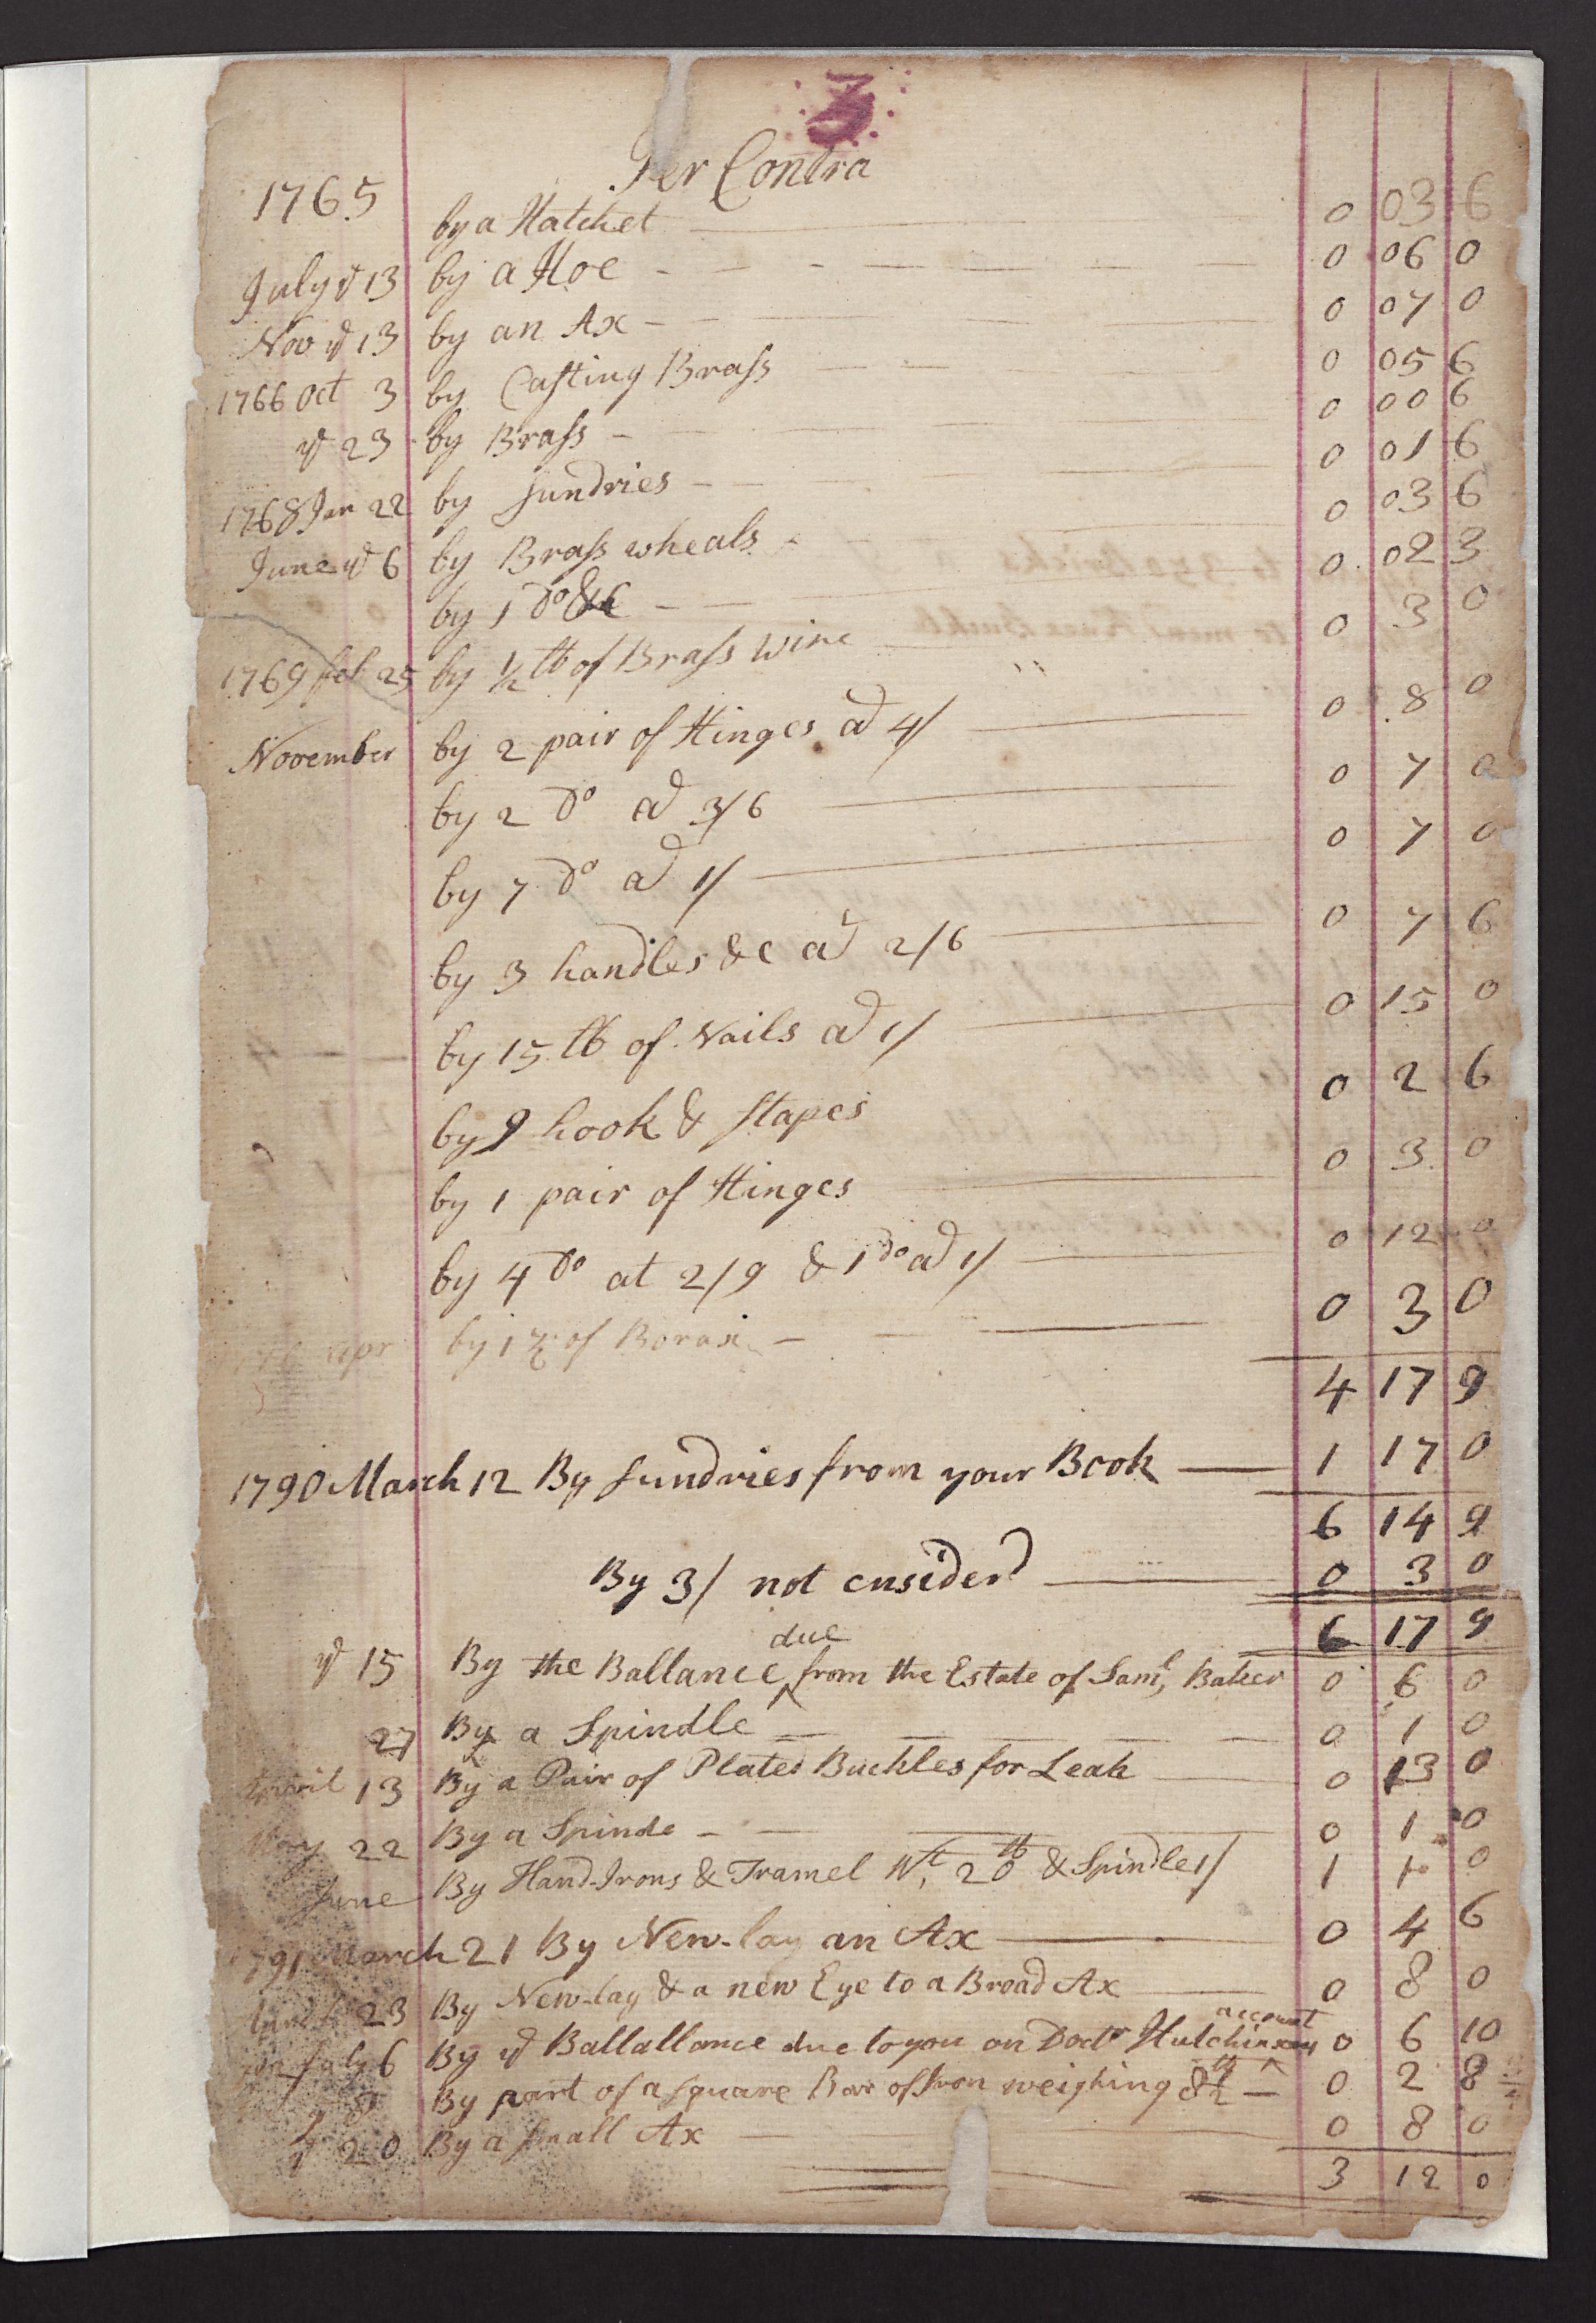 3
Per Contra
1765 by a Hatchet 0 03 6
July ye 13 by a Hoe 0 06 0
Nov ye 13 by an Ax 0 07 0
1766 Oct 3 by Casting Brass 0 05 6
ye 23 by Brass 0 00 6
1768 Jan 22 by sundries 0 01 6
June ye 6 by Brass wheals 0 03 6
by 1 Do &c 0 02 3
1769 feb 25 by ½ lb of Brass Wire 0 3 0
November by 2 pair of Hinges ad 4/ 0 8 0
by 2 Do ad 3/6 0 7 0
by 7 Do ad 1/ 0 7 0
by 3 handles &c ad 2/6 0 7 6
by 15 lb of Nails ad 1/ 0 15 0
by 9 hook & stapes 0 2 6
by 1 pair of Hinges 0 3 0
by 4 Do at 2/9 & 1 Do ad 1/ 0 12 0
apr by 1 of Borax 0 3 0
4 17 9
1790 March 12 By sundries from your Book 1 17 0
6 14 9
By 3/ not cnsiderd 0 3 0
6 17 9
ye 15 By the Ballance due from the Estate of Saml, Baker 0 6 0
27 By a Spindle 0 1 0
April 13 By a Pair of Plated Buckles for Leah 0 13 0
May 22 By a Spinde 0 1 0
June By Hand-Irons & Tramel Wt, 20 lb & Spindle 1/ 1 1 0
1791 March 21 By New-lay an Ax 0 4 6
23 By New-lay & a new Eye to a Broad Ax 0 8 0
July 6 By ye Ballallance due to you on Doctr Hutchinsons account 0 6 10
8 By part of a square Bar of Iron weighing 8½ lb 0 2 8
ye 20 By a small Ax 0 8 0
3 12 0